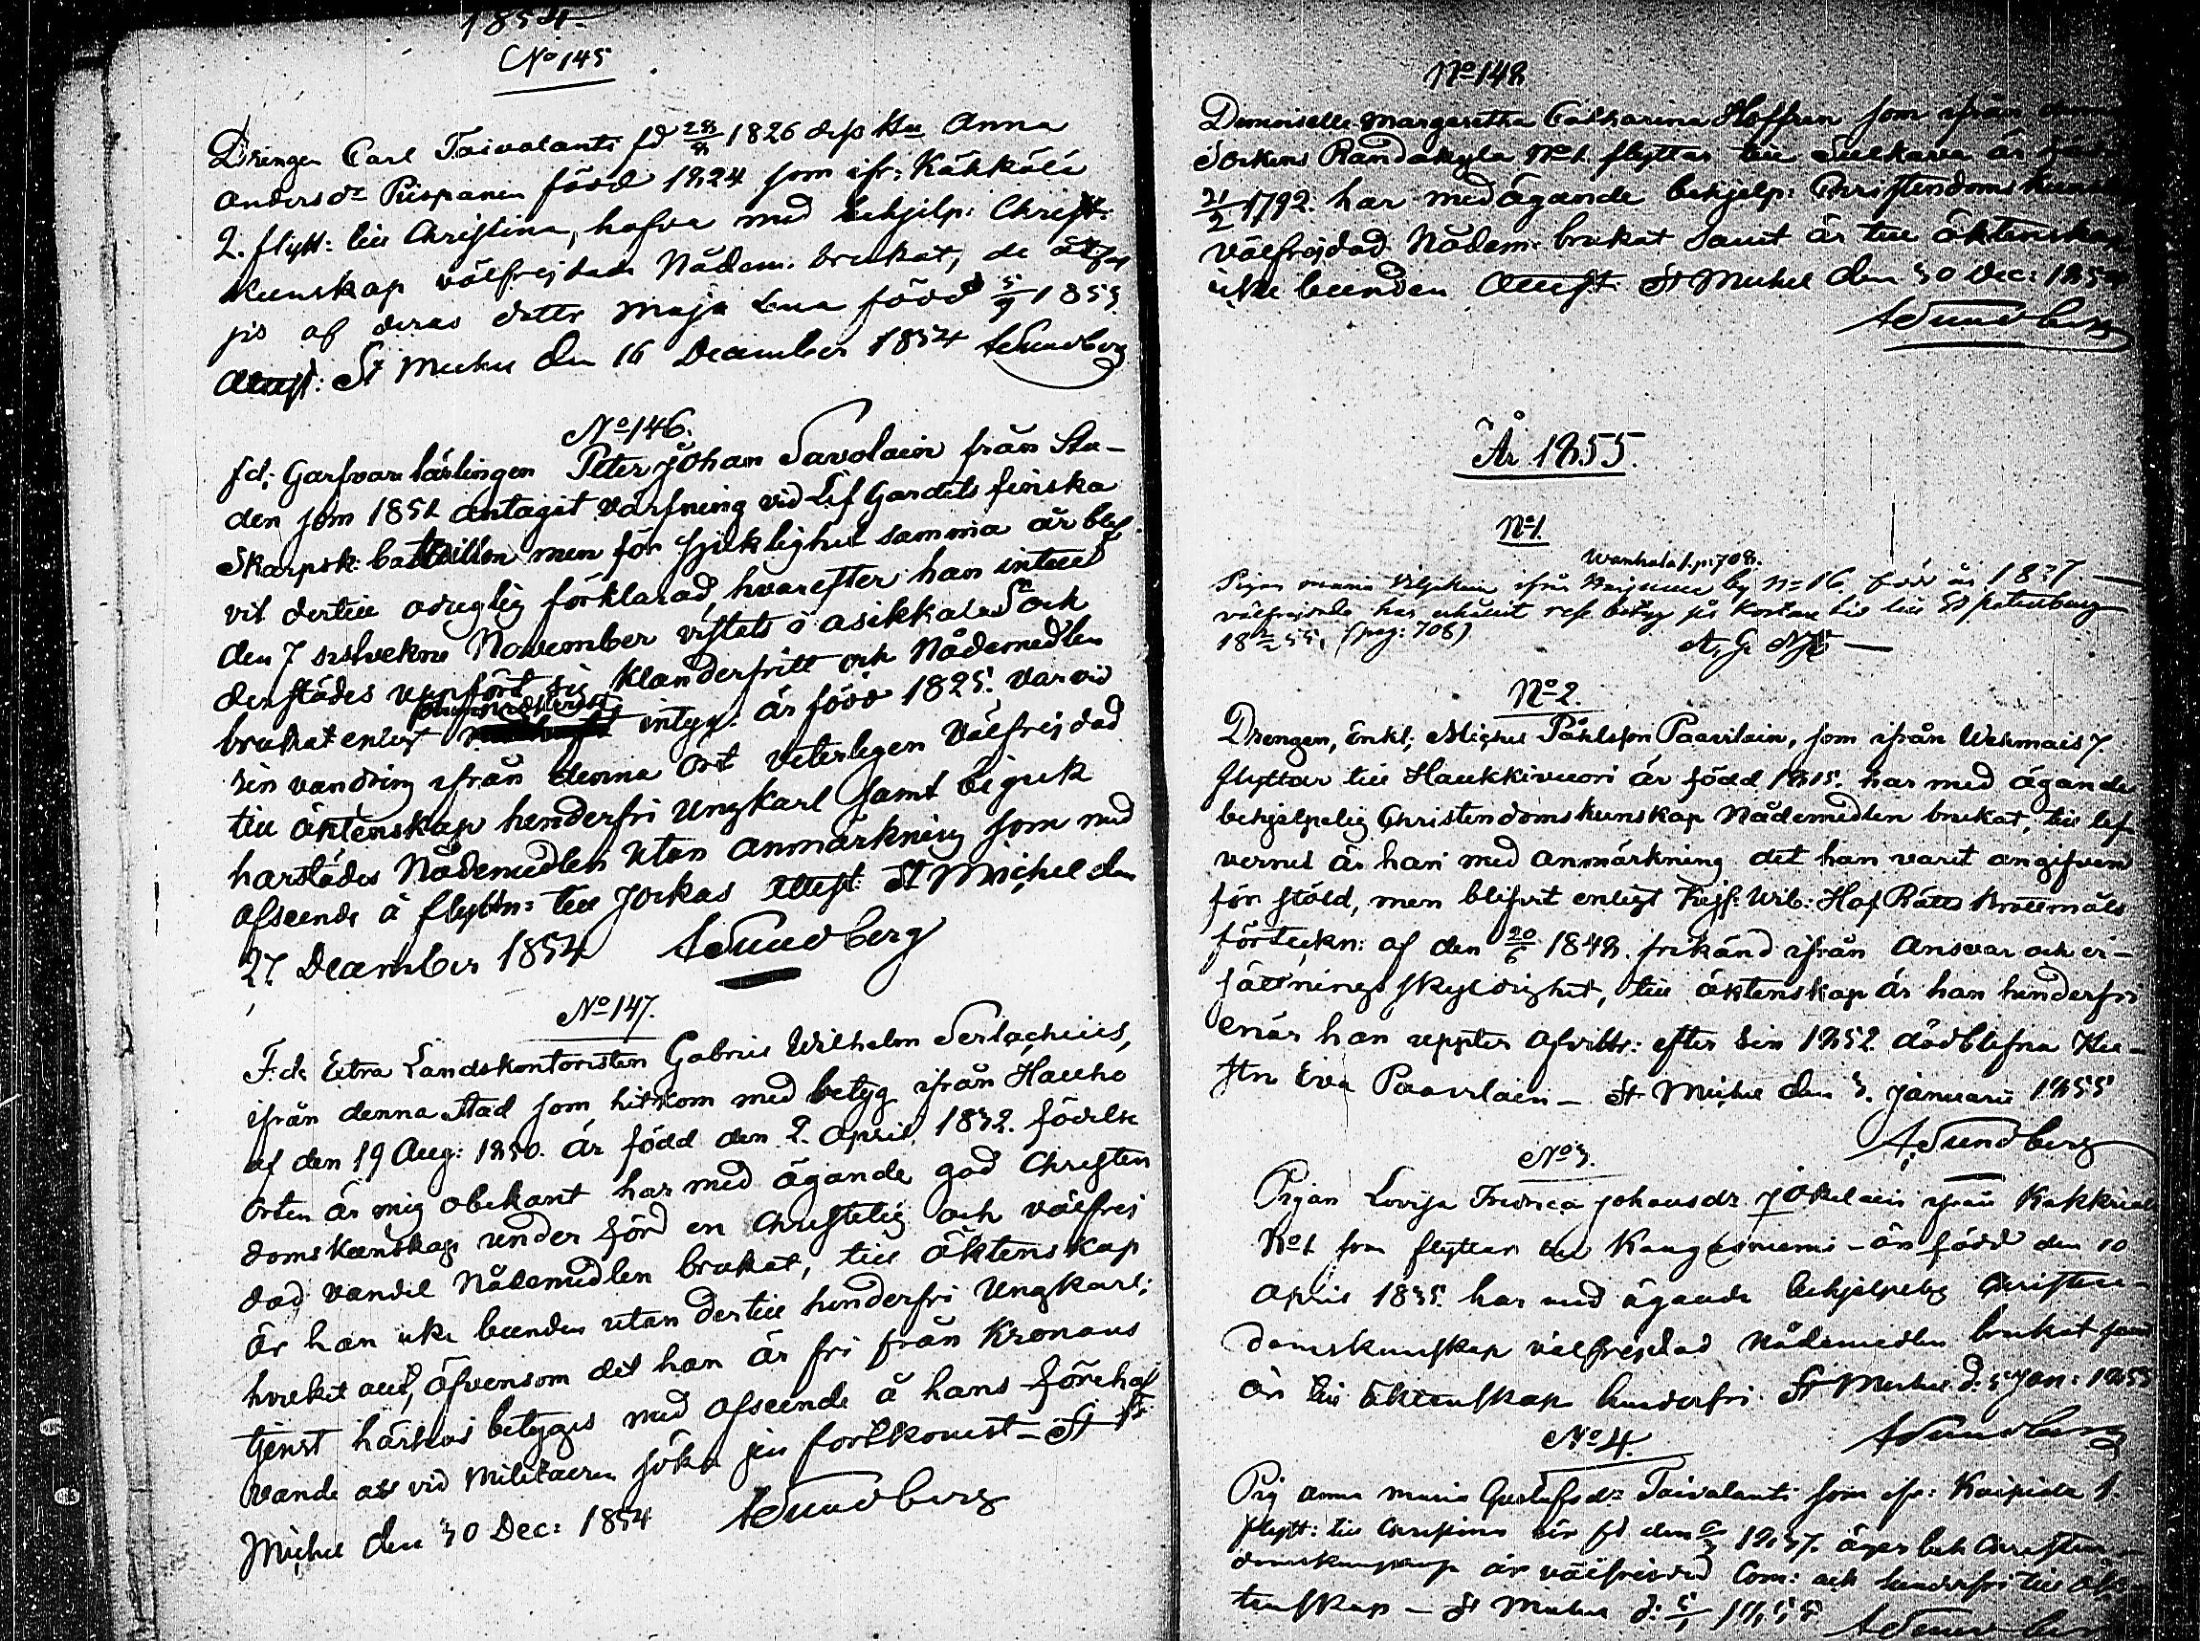 1854
No 145
Drengen Carl Taivalanti fd 28/8 1826 dess Hu Anna
Andersdr Piispanen född 1824 som ifr: Käkkölä
2. flytt: till Christina, hafva med behjelp: Christ:
kunskap välfrejdade Nådem. brukat, de åtföl
jes af deras dotter Maja Lena född 5/9 1853.
Attest: St Michel den 16 December 1854 ASundberg
No 146.
fd: Garfvare lärlingen Peter Johan Savolain från Sta-
den som 1851 antagit värfning vid Lif Gardets finska
Skarpsk: bataillon men för sjuklighet samma år blef
vit dertill oduglig förklarad hvarefter han intill
den 7 sistvekne November vistets i Asikkala Sock
derstädes uppfört sig klanderfritt och Nådemedlen
brukat enligt intyg: är född 1825. var vid
sin vandring ifrån denna Ort veterligen Välfrejdad
till äktenskap hinderfri Ungkarl samt begick
härstädes Nådemedlen utan anmärkning som med
afseende å flyttn: till Jockas attest: St Michel den
27 December 1854 ASundberg
No 147.
F.d. Extra Landskontoristen Gabriel Wilhelm Serlachius,
ifrån denna Stad som hitkom med betyg ifrån Hauho
af den 19 Aug: 1850. är född den 2. April 1832. födelse
orten är mig obekant har med ägande god Christen
domskunskap under förd en Christelig och välfrej
dad vandel Nådemedlen brukat, till äktenskap
är han icke bunden utan dertill hinderfri Ungkarl;
hvilket allt, äfvensom det han är fri från Kronans
tjenst härhos betyges med afseende å hans förehaf
vande att vid Militairen söka sin fortkomst – St
Michel den 30 Dec: 1854 ASundberg
No 148
Demoiselle Margaretha Catharina Hoffren som ifrån denna
Sockens Randakyla No 1. flyttar till Sulkava är född
21/2 1792. har med ägande behjelp: Christendoms kunskap
välfrejdad Nådem: brukat samt är till äktenskap
icke bunden Attest St Michel den 30 Dec: 1854
ASundberg
År 1855.
No 1.
Wanhala 1. p: 708.
Pigan Maria ifrån by No 16. född år 1837.
välfrejdade har erhållit betyg på kortare tid till St Petersburg
18 2/2 55, (pag: 708)
No 2.
Drengen, Enkl; Michel Påhlsson Paavilain, som ifrån Wehmais 7
flyttar till Haukkivuori är född 1815. har med ägande
behjelpelig Christendomskunskap Nådemedlen brukat, till lef
verne är han med anmärkning det han varit angifven
för stöld, men blifvit enligt Kejs: Wib: Hof Rätts Brottmåls
förteckn: af den 20/6 1848. frikänd ifrån Ansvar och er-
sättnings skyldighet, till äktenskap är han hinderfri
enär han uppter afvittr: efter sin 1852 död blefna Hu-
stru Eva Paavilain – St Michel den 3. Januarii 1855
ASundberg
No 3.
Pigan Lovisa Fredrica Johansdr Jokelain ifrån
No 1 som flyttar till Kangasniemi – är född den 10
April 1835. har med ägande behjelpelig Christen-
domskunskap välfrejdad Nådemedlen brukat samt
är till äktenskap hinderfri St Michel d: 5 Jan: 1855
ASundberg
No 4.
Pig Anna Maria Gustafsdr Taivalanti som ifr: Kaipiala 1.
flytt: till Christina är fd den 1837. äger beh Christen-
domskunskap är välfrejdad Com: och hinderfri till äk-
tenskap – St Michel d: 5/1 1855
ASundberg